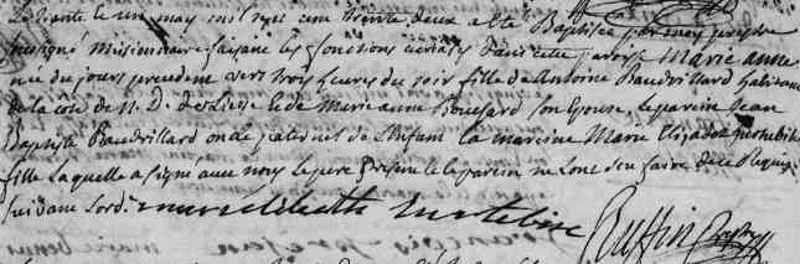 Le trente et un may mil sept cent trente deux a eté Baptisée par moy prestre
soussigné missionnaire faisant les fonctions curiales dans cette paroisse Marie anne
née du jours precedent vers trois heures du soir fille de Antoine Baudrillard habitant
de la côte de N. D. de Liesse et de Marie anne Bouchard son Epouse, le parein Jean
Baptiste Baudrillard oncle paternel de l'Enfant la mareine Marie Elizabet
fille Laquelle a signé avec nous le pere present et le parein ne sont sçu faire de ce Requis
suivant l'ord. marie elisabeth Ruffin ptre